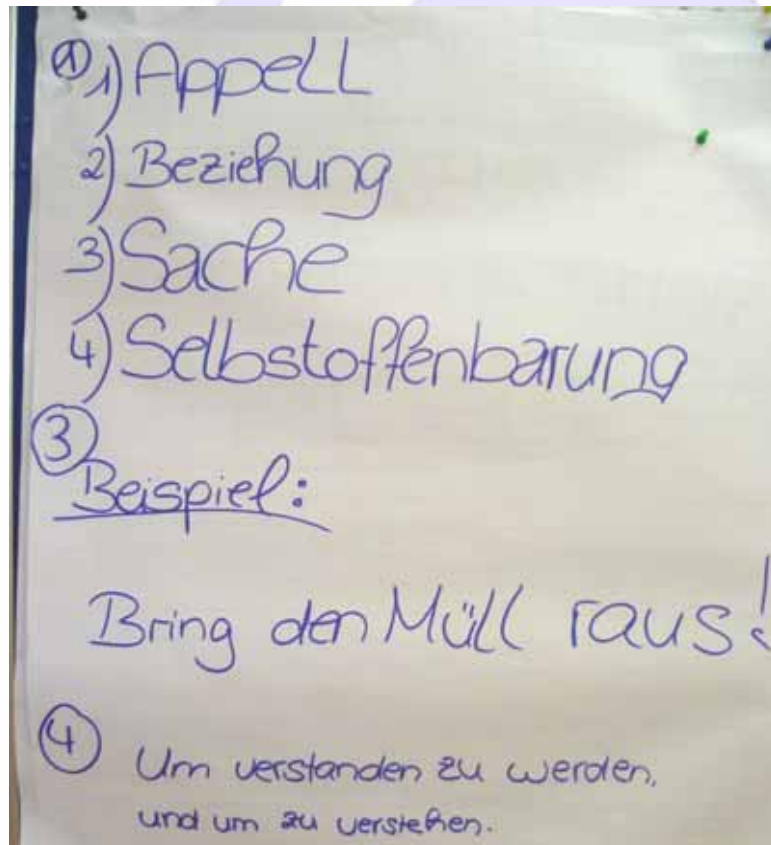 ① 1) Appell
2) Beziehung
3) Sache
4) Selbstoffenbarung
③
Beispiel:
Bring den Müll raus!
④ Um verstanden zu werden,
und um zu verstehen.